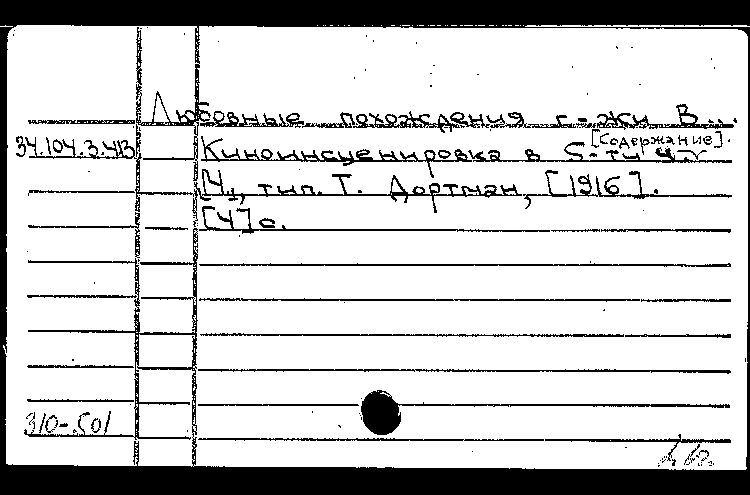 Любовные похождения г-жи В...
[Содержание].
34.104.3.413 Киноинсценировка в 5-ти ч-х
[М., тип. Т. Дортман, [1916].
[4] с.
310-501